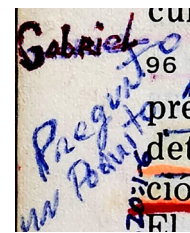 Gabriel
Pregunto
un Poquito
96
pre
det
cio
El